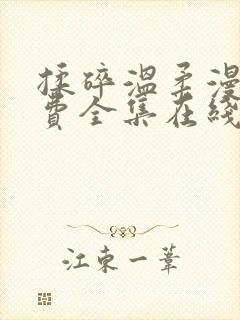 揉碎温柔漫
费全集在线
江东一苇